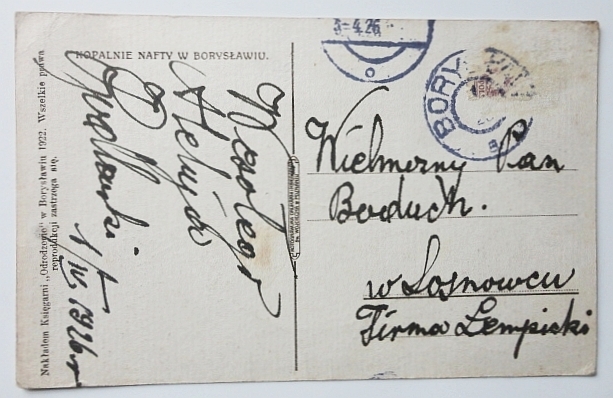 KOPALNIE NAFTY W BORYSŁAWIU.
Nakładem Księgarni „Odrodzenie" w Borysławiu 1922. Wszelkie prawa
reprodukcji zastrzega się.
Wesołego
Aleluja
1/IV. 1926 r
3-4.26
BORY
Wielmożny Pan
Borduch.
w Sosnowcu
Firma Lempicki